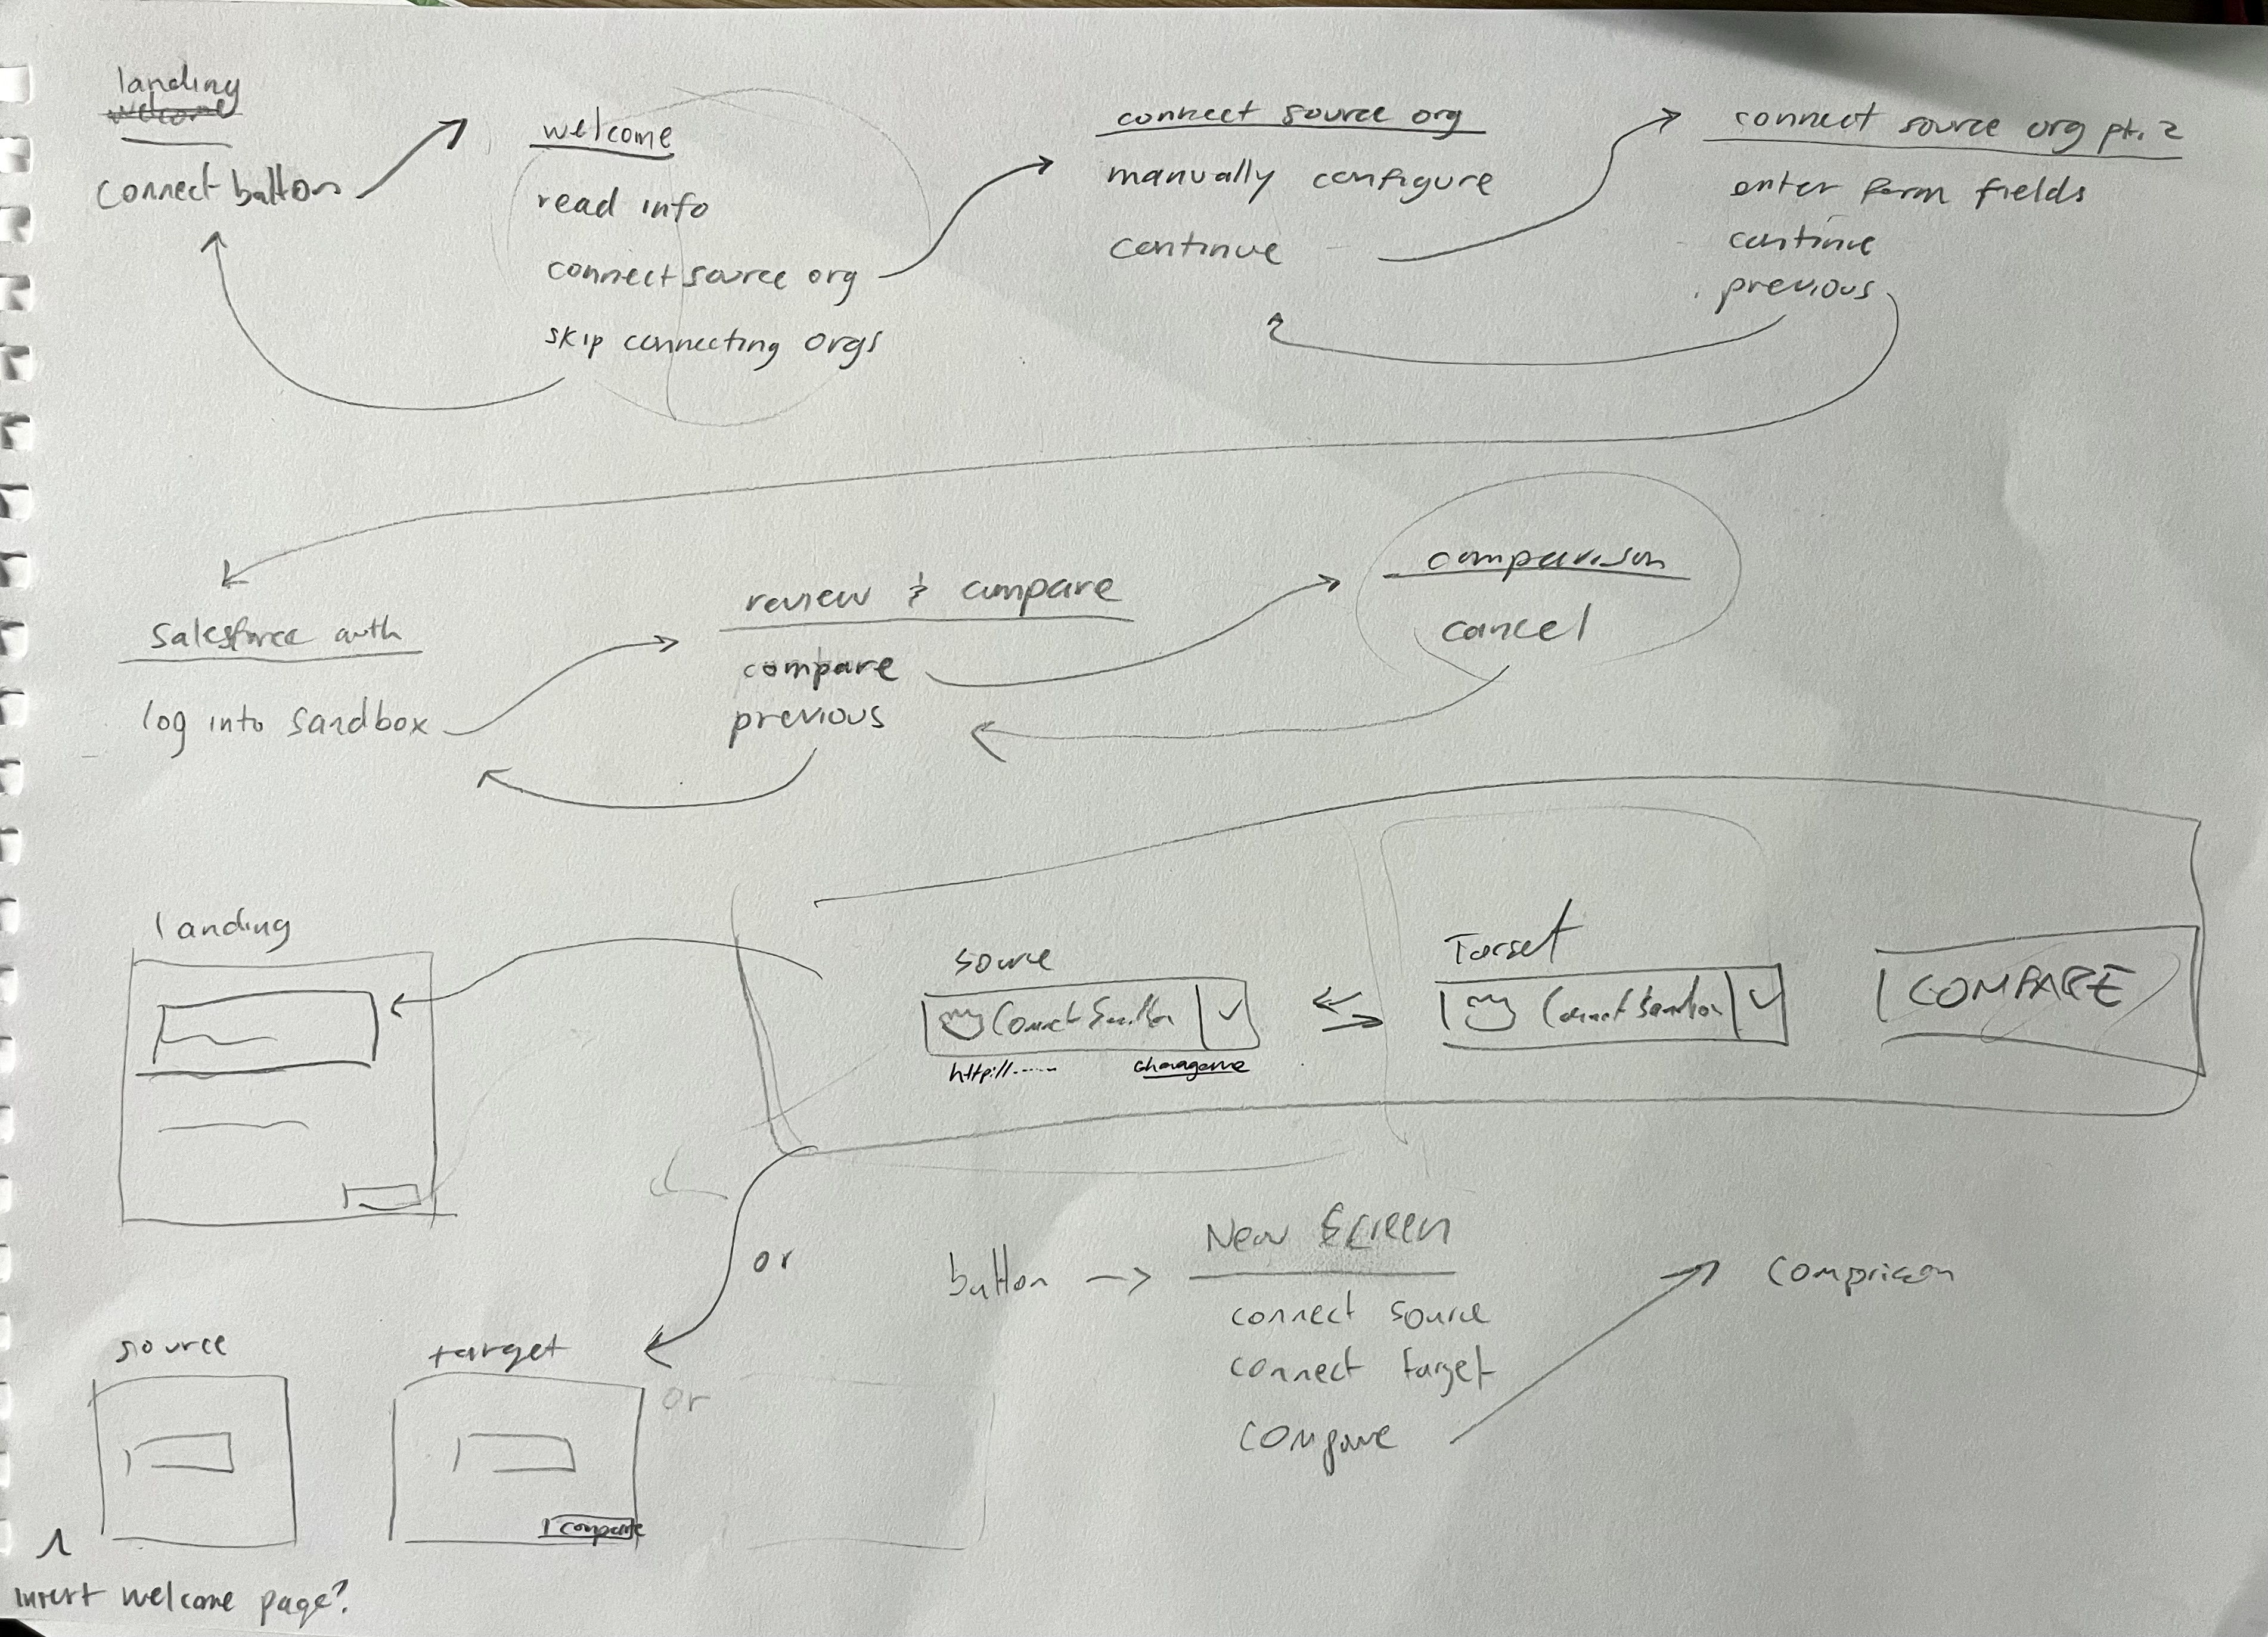 landing
welcome
connect button
welcome
read info
connect source org
skip connecting orgs
connect source org
manually configure
continue
connect source org pt. 2
enter form fields
continue
previous
salesforce auth
log into sandbox
review & compare
compare
previous
comparison
cancel
landing
source
Connect Sandbox
http://......
Target
Connect Sandbox
COMPARE
or
button → New Screen
connect source
connect target
compare
source
target
or
compare
insert welcome page?